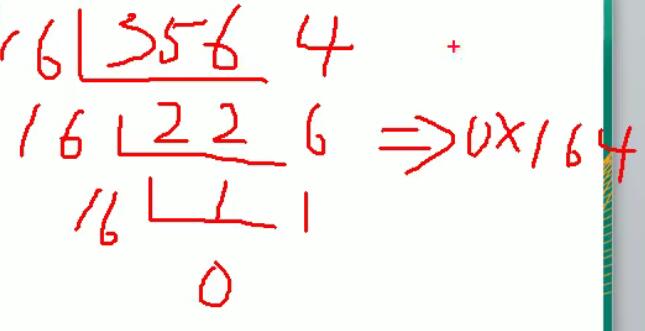 16 356 4
16 22 6 => 0x164
16 1 1
0